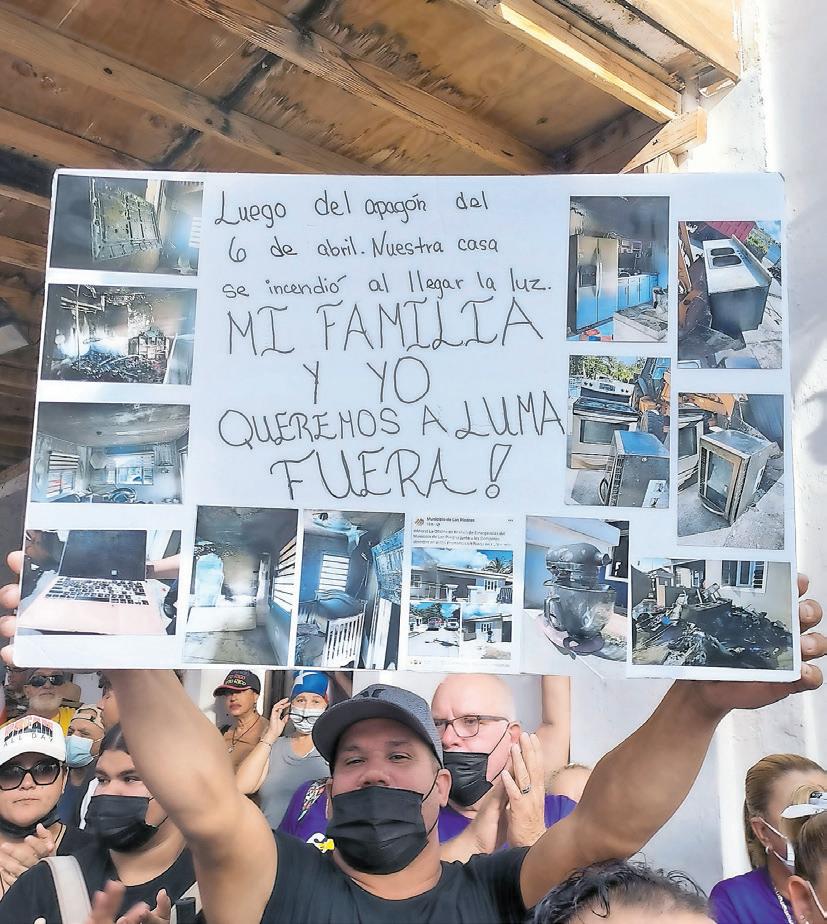 Luego del apagón del
6 de abril. Nuestra casa
se incendió al llegar la luz.
MI FAMILIA
Y YO
QUEREMOS A LUMA
FUERA!
Municipio de Las Piedras
DREAM
ALL DAY